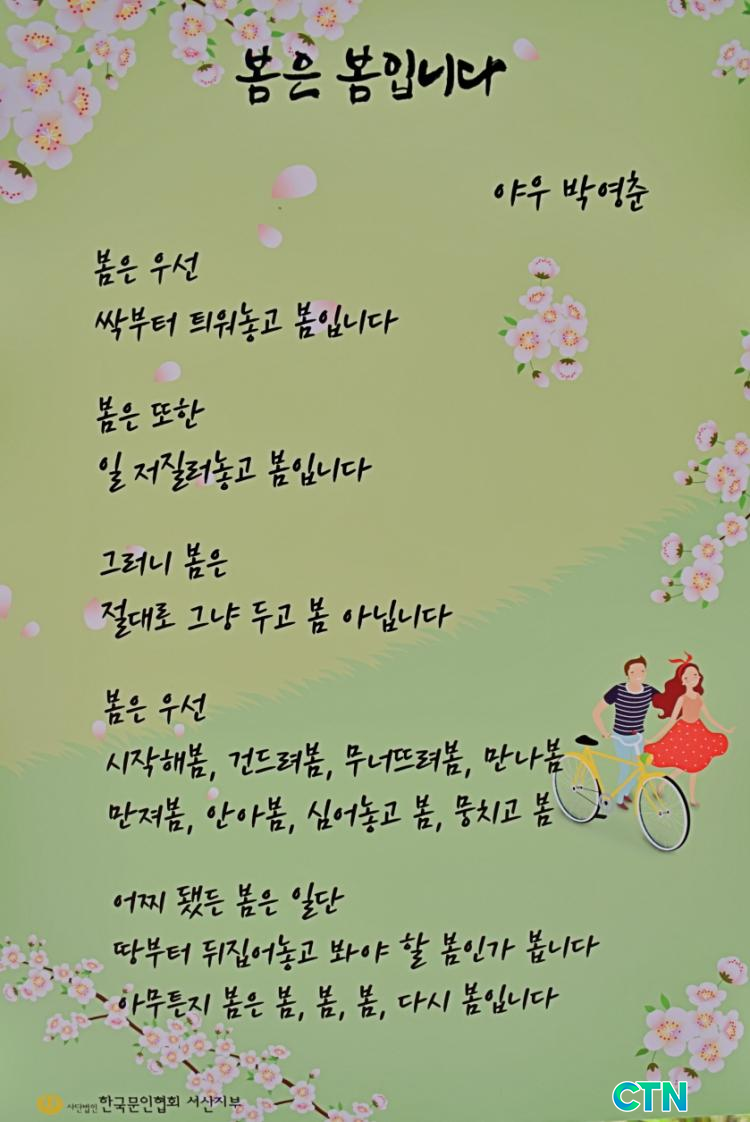 봄은 봄입니다
야우 박영춘
봄은 우선
싹부터 틔워놓고 봄입니다
봄은 또한
일 저질러놓고 봄입니다
그러니 봄은
절대로 그냥 두고 봄 아닙니다
봄은 우선
시작해봄, 건드려봄, 무너뜨려봄, 만나봄
만져봄, 안아봄, 심어놓고 봄, 뭉치고 봄
어찌 됐든 봄은 일단
땅부터 뒤집어놓고 봐야 할 봄인가 봅니다
아무튼지 봄은 봄, 봄, 봄, 다시 봄입니다
사단법인 한국문인협회 서산지부
CTN